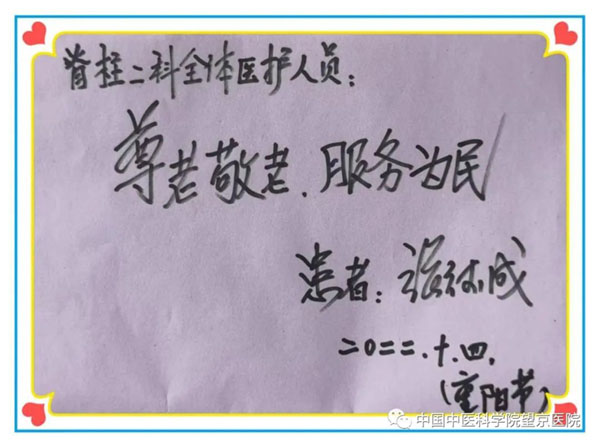 脊柱二科全体医护人员：
尊老敬老．服务为民
患者：张
二〇二二．十．四．
（重阳节）
中国中医科学院望京医院